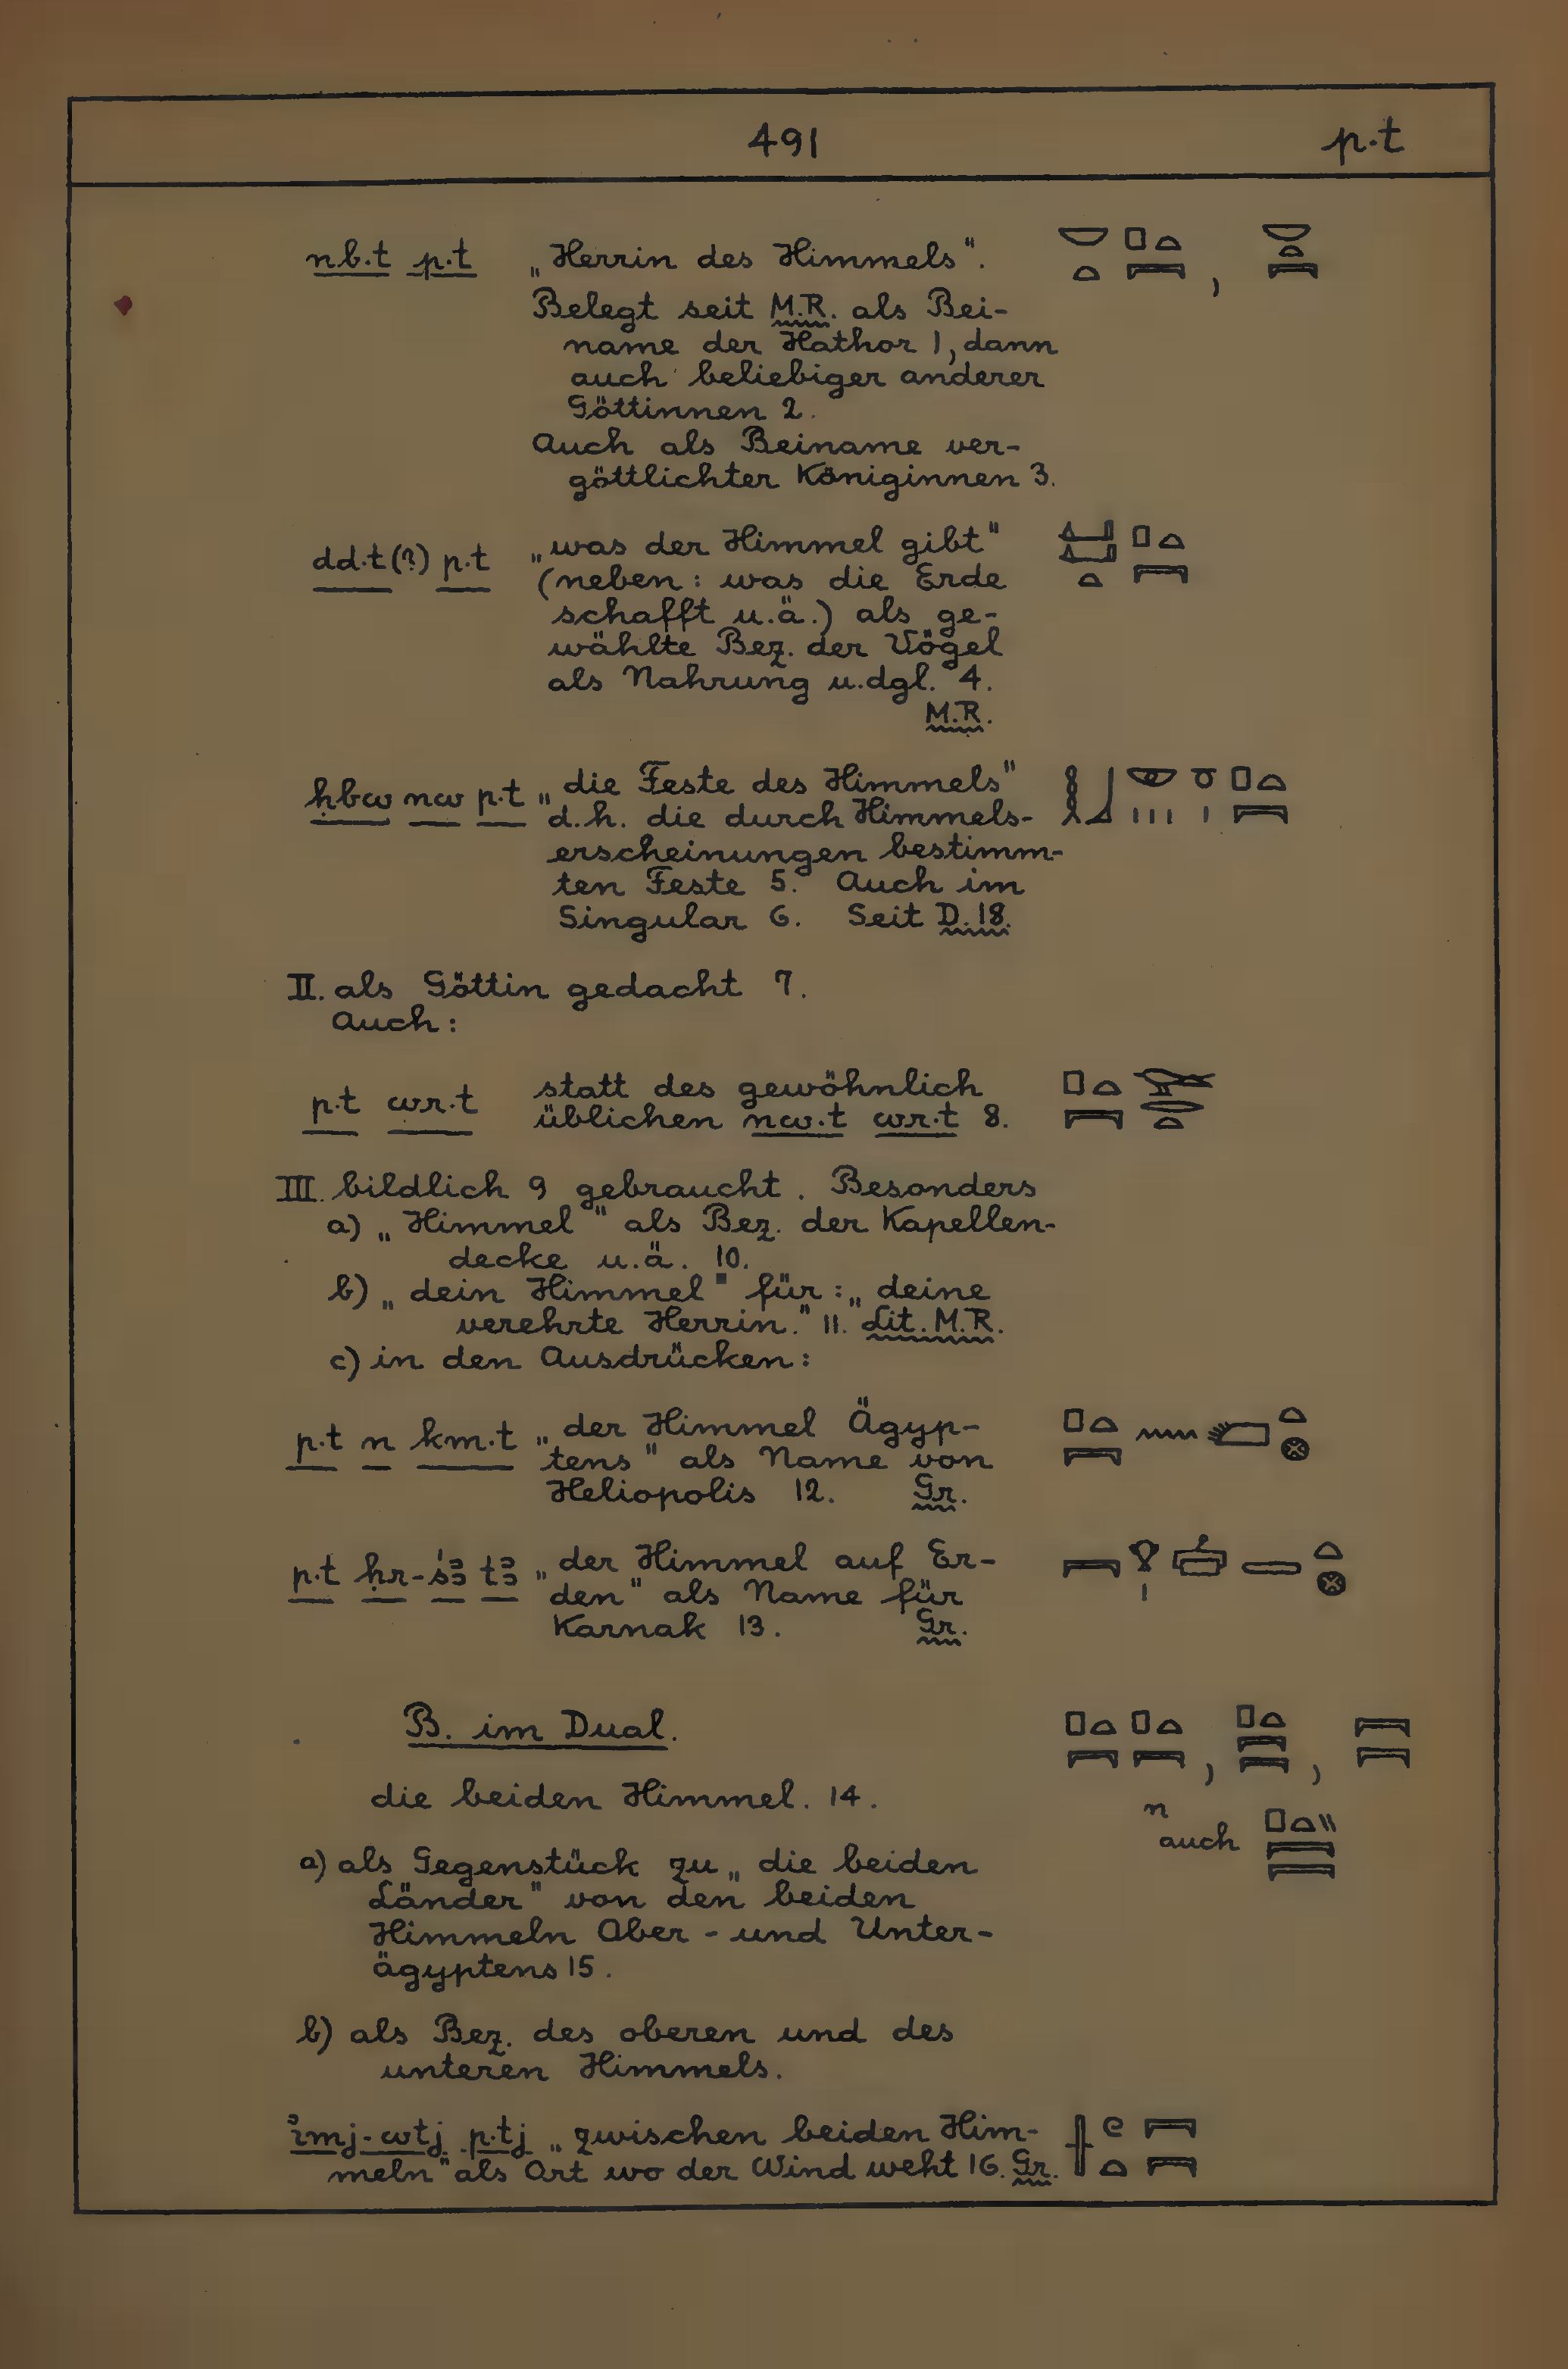 491 p.t
nb.t p.t „Herrin des Himmels".
Belegt seit M.R. als Bei-
name der Hathor 1, dann
auch beliebiger anderer
Göttinnen 2.
Auch als Beiname ver-
göttlichter Königinnen 3.
dd.t(?) p.t „was der Himmel gibt"
(neben: was die Erde
schafft u.ä.) als ge-
wählte Bez. der Vögel
als Nahrung u.dgl. 4.
M.R.
ḥbw nw p.t „die Feste des Himmels"
d.h. die durch Himmels-
erscheinungen bestimm-
ten Feste 5. Auch im
Singular 6. Seit D.18.
II. als Göttin gedacht 7.
Auch:
p.t wr.t statt des gewöhnlich
üblichen nw.t wr.t 8.
III. bildlich 9 gebraucht. Besonders
a) „Himmel" als Bez. der Kapellen-
decke u.ä. 10.
b) „dein Himmel" für: „deine
verehrte Herrin." 11. Lit. M.R.
c) in den Ausdrücken:
p.t n km.t „der Himmel Ägyp-
tens" als Name von
Heliopolis 12. Gr.
p.t ḥr-śꜣ tꜣ „der Himmel auf Er-
den" als Name für
Karnak 13. Gr.
B. im Dual.
die beiden Himmel. 14.
n
auch
a) als Gegenstück zu „die beiden
Länder" von den beiden
Himmeln Ober- und Unter-
ägyptens 15.
b) als Bez. des oberen und des
unteren Himmels.
ỉmj-wtj p.tj „zwischen beiden Him-
meln" als Ort wo der Wind weht 16. Gr.